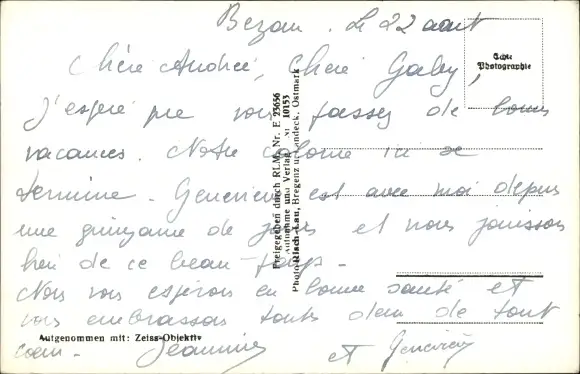 Bezau. Le 22 août
Chère Andrée, Chère Gaby,
J'espère que vous passez de bonnes
vacances. Notre colonie ici se
termine. Geneviève est avec moi depuis
une quinzaine de jours et nous jouissons
bien de ce beau-temps.
Nous vous espérons en bonne santé et
vous embrassons toutes deux de tout
coeur. Jeannine et Geneviève
Echte
Photographie
Freigegeben durch RLM. Nr. E 23656
Aufnahme und Verlag Nr 10153
Photo Risch-Lau, Bregenz u. Landeck, Ostmark
Aufgenommen mit: Zeiss-Objektiv